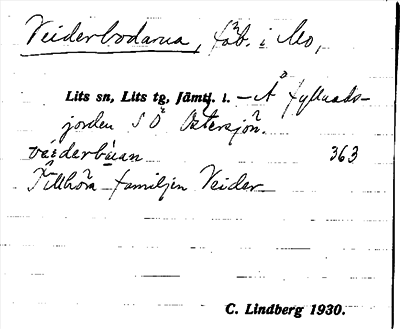 Veiderbodarna, fäb. i Mo,
Lits sn, Lits tg. Jämtl. l. — Å fyllnads-
jorden S Ö Ostersjön.
véiderbúan 363
Tillhöra familjen Veider
C. Lindberg 1930.